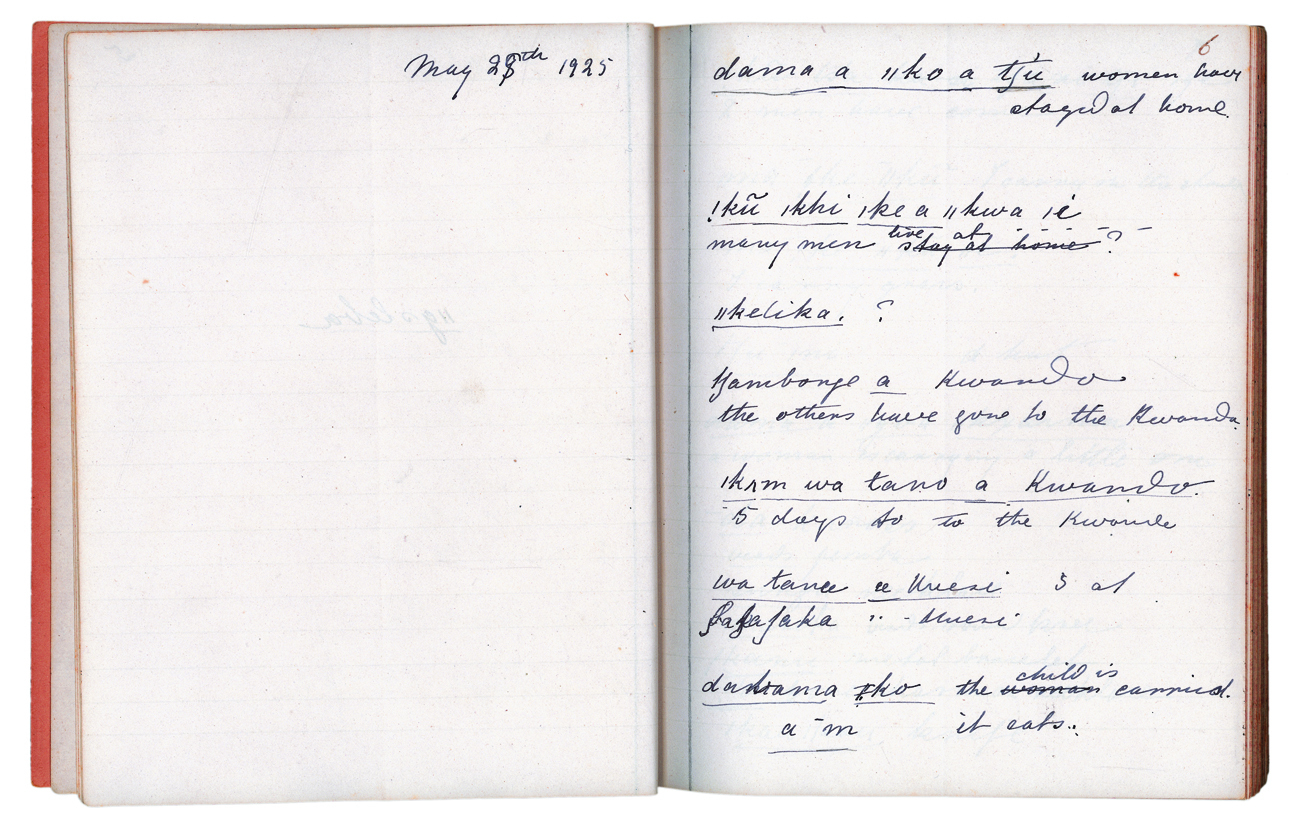 May 28th 1925
6
dama a ǁko a tʃu women have
stayed at home.
!kũ ǀkhi ǀke a ǁkwa ǀé
many men live at stay at home ?
ǁkelika. ?
a Kwando
the others have gone to the Kwando.
ǀkʌm wa tano a Kwando.
5 days to to the Kwando
wa tano a 5 at
dama ǁko the woman child is carried.
a m it eats.